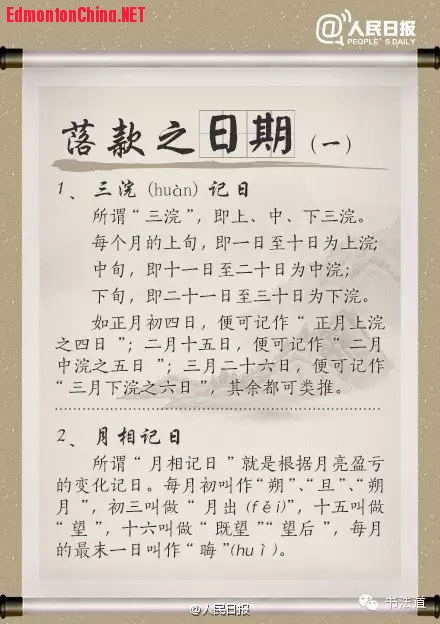 EdmontonChina.NET
@人民日报
PEOPLE'S DAILY
落款之日期(一)
1、三浣(huàn)记日
所谓“三浣”,即上、中、下三浣。
每个月的上旬,即一日至十日为上浣;
中旬,即十一日至二十日为中浣;
下旬,即二十一日至三十日为下浣。
如正月初四日,便可记作“正月上浣
之四日”;二月十五日,便可记作“二月
中浣之五日”;三月二十六日,便可记作
“三月下浣之六日”,其余都可类推。
2、月相记日
所谓“月相记日”就是根据月亮盈亏
的变化记日。每月初叫作“朔”、“旦”、“朔
月”,初三叫做“月出(fěi)”,十五叫做
“望”,十六叫做“既望”“望后”,每月
的最末一日叫作“晦”(huì)。
@人民日报
书法道